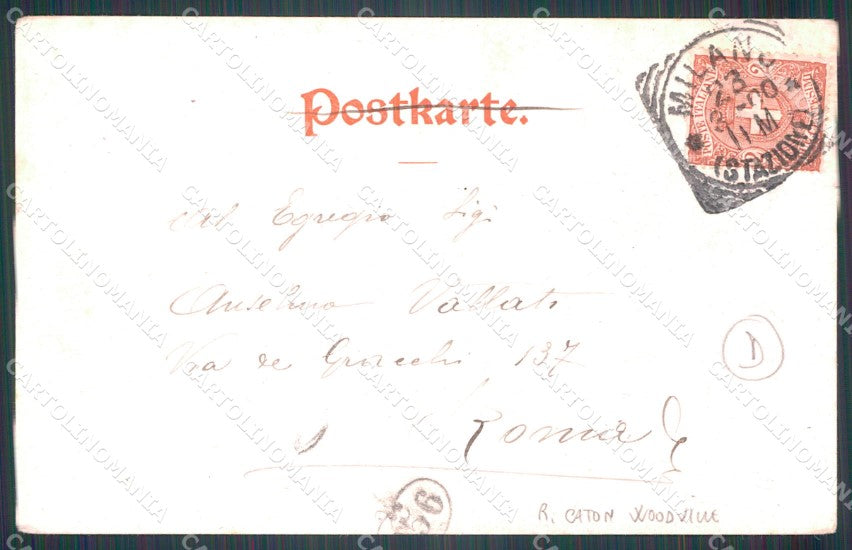 Postkarte.
MILANO
(STAZIONE)
23
00
11 M
Al Egregio Sigr
Anselmo Vallati
Via de Gracchi 137
Roma
D
R. CATON WOODVILLE
CARTOLINOMANIA